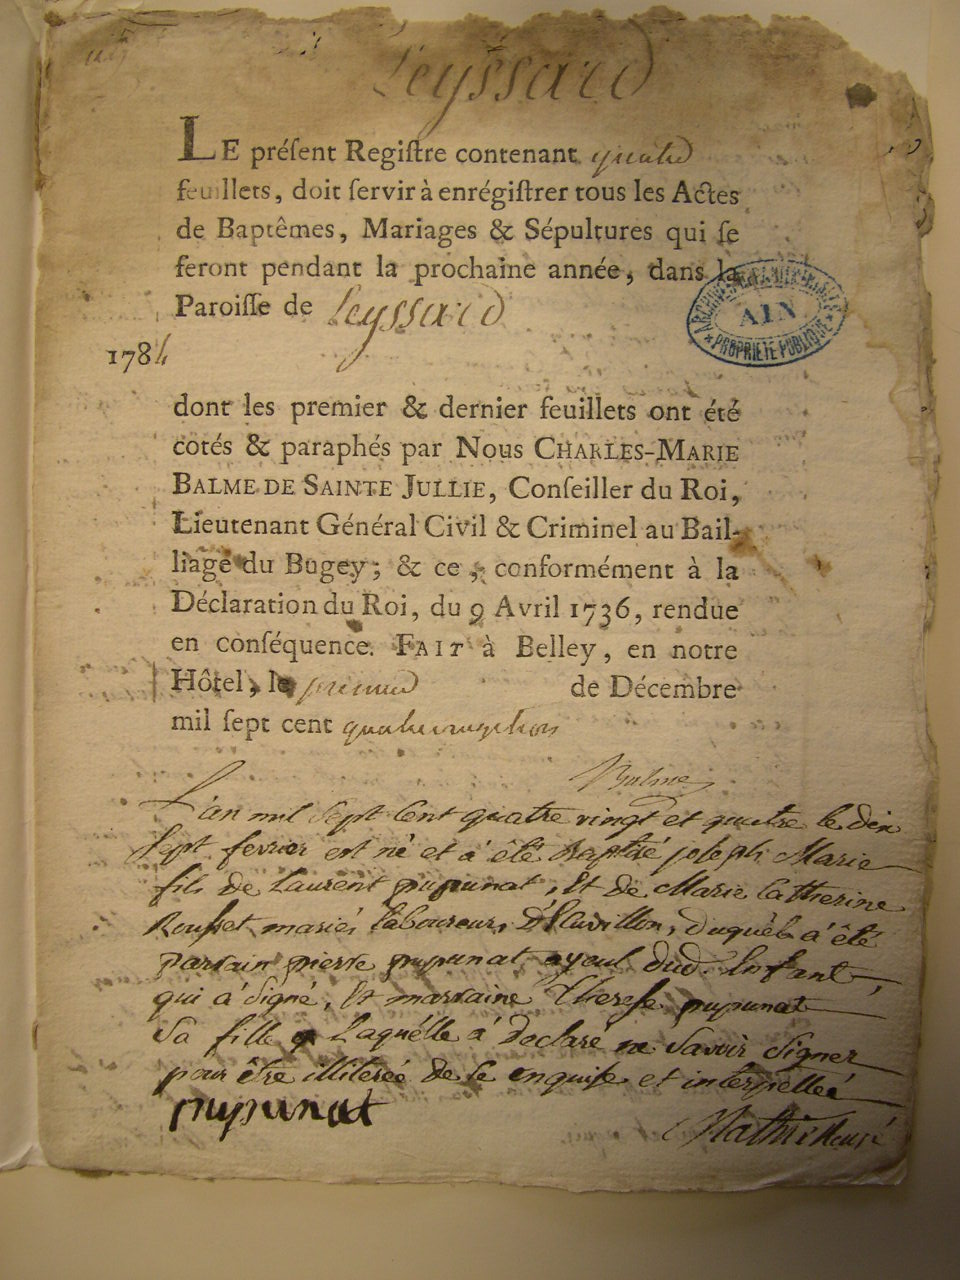 Leyssard
LE préſent Regiſtre contenant quatre
feuillets, doit ſervir à enrégiſtrer tous les Actes
de Baptêmes, Mariages & Sépultures qui ſe
feront pendant la prochaine année, dans la
Paroiſſe de Leyssard
ARCHIVES DÉPARTEMENTALES
AIN
* PROPRIÉTÉ PUBLIQUE *
1784
dont les premier & dernier feuillets ont été
cotés & paraphés par Nous CHARLES-MARIE
BALME DE SAINTE JULLIE, Conſeiller du Roi,
Lieutenant Général Civil & Criminel au Bail-
liage du Bugey; & ce, conformément à la
Déclaration du Roi, du 9 Avril 1736, rendue
en conſéquence. FAIT à Belley, en notre
Hôtel, le premier de Décembre
mil ſept cent quatrevingt trois
Balme
L'an mil sept cent quatre vingt et quatre le dix
sept fevrier est né et a été Baptisé joseph Marie
fils de Laurent pupunat, Et de Marie Catherine
Rousset mariés laboureurs, duquel a été
parrain pierre pupunat ayeul dud. Enfant,
qui a signé, Et marraine Therese pupunat
sa fille Laquelle a Declaré ne savoir signer
pour être illiterée de ce enquise et interpellée
pupunat